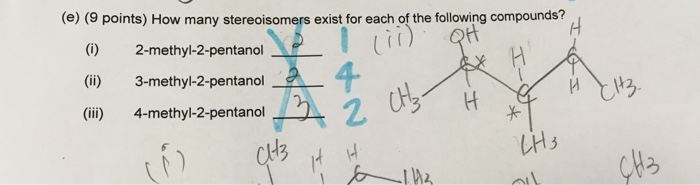 (e) (9 points) How many stereoisomers exist for each of the following compounds?
(i) 2-methyl-2-pentanol 2 1
(ii) 3-methyl-2-pentanol 2 4
(iii) 4-methyl-2-pentanol 3 2
(ii) OH H H
* CH3 H * H CH3
CH3
(i) CH3 H H CH3
CH3